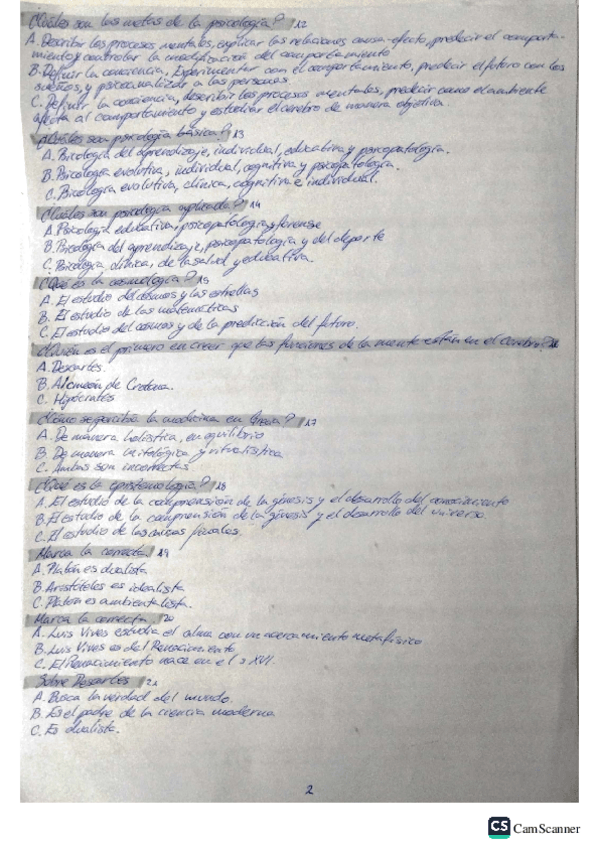 ¿Cuáles son las metas de la psicología? 12
A. Describir los procesos mentales, explicar las relaciones causa-efecto, predecir el comporta-
miento y controlar la modificación del comportamiento
B. Definir la conciencia, Experimentar con el comportamiento, predecir el futuro con los
sueños, y psicoanalizar a las personas.
C. Definir la conciencia, describir los procesos mentales, predecir como el ambiente
afecta al comportamiento y estudiar el cerebro de manera objetiva.
¿Cuáles son psicología básica? 13
A. Psicología del aprendizaje, individual, educativa y psicopatología.
B. Psicología evolutiva, individual, cognitiva y psicopatología.
C. Psicología evolutiva, clínica, cognitiva e individual.
¿Cuáles son psicología aplicada? 14
A. Psicología educativa, psicopatología y forense
B. Psicología del aprendizaje, psicopatología y del deporte
C. Psicología clínica, de la salud y educativa.
¿Qué es la cosmología? 15
A. El estudio del cosmos y las estrellas
B. El estudio de las matemáticas
C. El estudio del cosmos y de la predicción del futuro.
¿Quién es el primero en creer que las funciones de la mente están en el cerebro? 16
A. Descartes.
B. Alcmeón de Crotona.
C. Hipócrates
¿Cómo se percibía la medicina en Grecia? 17
A. De manera holística, en equilibrio
B. De manera mitológica y ritualística
C. Ambas son incorrectas
¿Qué es la epistemología? 18
A. El estudio de la comprensión de la génesis y el desarrollo del conocimiento
B. El estudio de la comprensión de la génesis y el desarrollo del universo.
C. El estudio de las causas finales.
Marca la correcta. 19
A. Platón es dualista.
B. Aristóteles es idealista
C. Platón es ambientalista.
Marca la correcta. 20
A. Luis Vives estudia el alma con un acercamiento metafísico
B. Luis Vives es del Renacimiento
C. El Renacimiento nace en el s XVI.
Sobre Descartes 21
A. Busca la verdad del mundo.
B. Es el padre de la ciencia moderna
C. Es dualista.
2
CS CamScanner